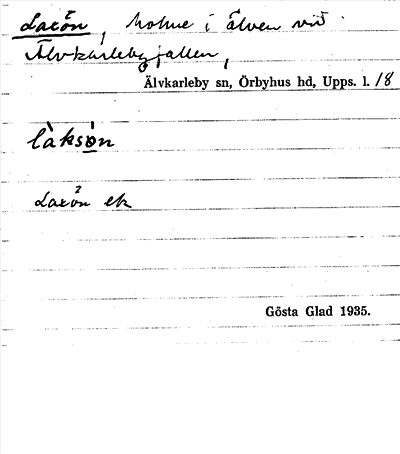 Laxön, holme i älven vid
Älvkarlebyfallen,
Älvkarleby sn, Örbyhus hd, Upps. l. 18
làksòn
Laxön ek
Gösta Glad 1935.